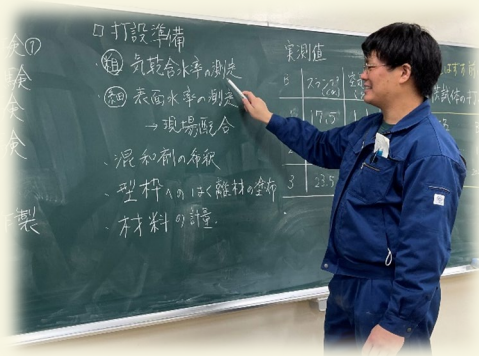 □ 打設準備
・粗 気乾含水率の測定
・細 表面水率の測定
→現場配合
・混和剤の希釈
・型枠へのはく離材の塗布
・材料の計量
実測値
スランプ
17.5
3 23.5
験①
験
験
製